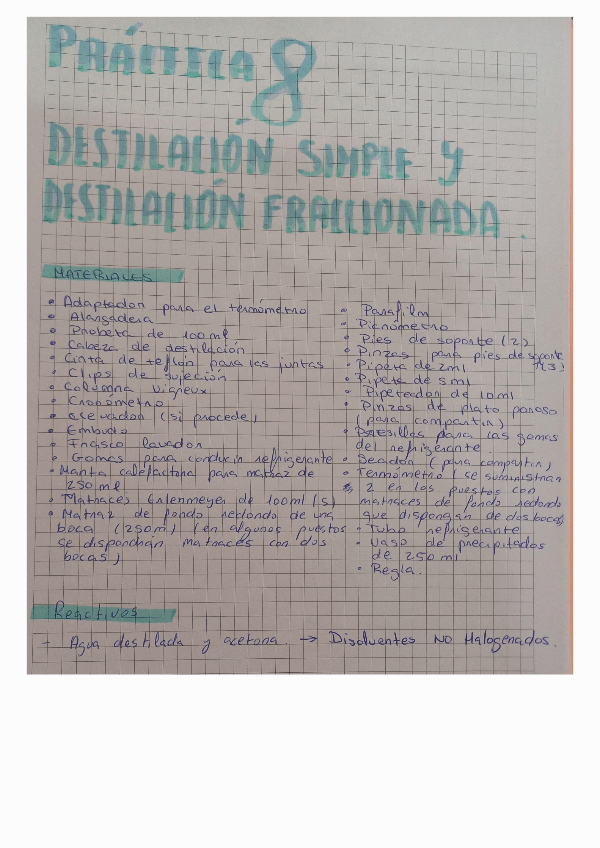 PRÁCTICA 8
DESTILACIÓN SIMPLE Y
DESTILACIÓN FRACCIONADA.
MATERIALES
• Adaptador para el termómetro
• Alargadera
• Probeta de 100ml
• Cabeza de destilación
• Cinta de teflón para las juntas
• Clips de sujeción
• Columna Vigreux
• Cronómetro
• Elevador (si procede)
• Embudo
• Frasco lavador
• Gomas para conducir refrigerante
• Manta calefactora para matraz de
250 ml
• Matraces Erlenmeyer de 100ml (5)
• Matraz de fondo redondo de una
boca (250ml) (en algunos puestos
se dispondrán matraces con dos
bocas)
• Parafilm
• Picnómetro
• Pies de soporte (2)
• Pinzas para pies de soporte
(3)
• Pipeta de 2ml
• Pipeta de 5ml
• Pipeteador de 10ml
• Pinzas de plato poroso
(para compartir)
• para las gomas
del refrigerante
• Secador (para compartir)
• Termómetro (se suministran
2 en los puestos con
matraces de fondo redondo
que dispongan de dos bocas)
• Tubo refrigerante
• Vaso de precipitados
de 250 ml
• Regla.
Reactivos
- Agua destilada y acetona. → Disolventes NO Halogenados.